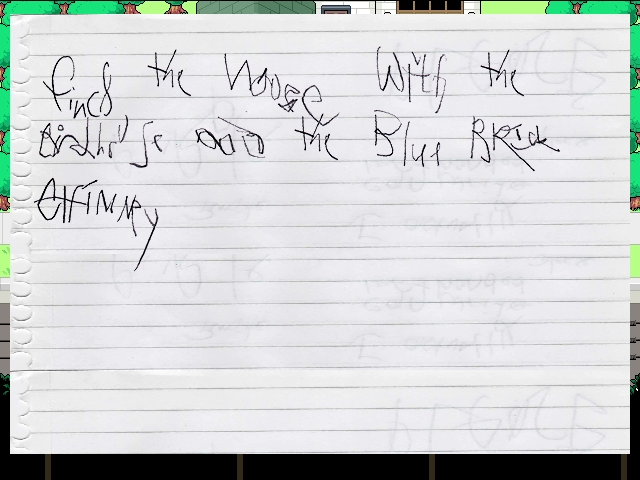 find the House With the
and the Blue BRick
CHIMNEy